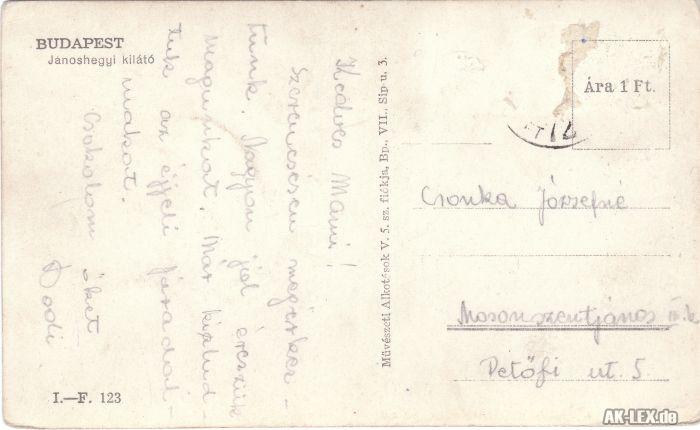 BUDAPEST
Jánoshegyi kilátó
Kedves Mami!
Szerencsésen megérkez-
tünk. Nagyon jól érezzük
magunkat. Már kialud-
tuk az éjjeli fáradal-
makat.
Csókolom őket
Dodi
I.—F. 123
Művészeti Alkotások V. 5. sz. fiókja, Bp., VII., Sip u. 3.
Ára 1 Ft.
Csonka Józsefné
Mosonszentjános
Petőfi ut. 5.
AK-LEX.de